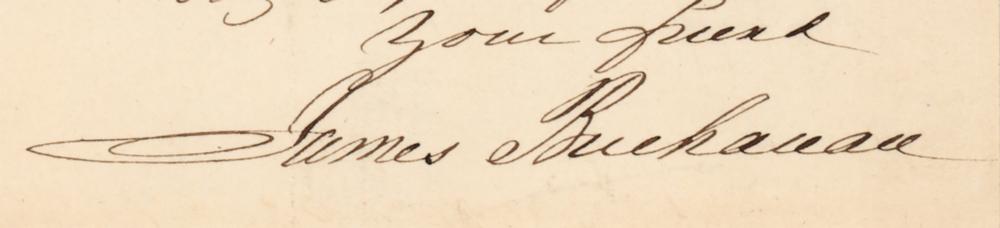 your friend
James Buchanan